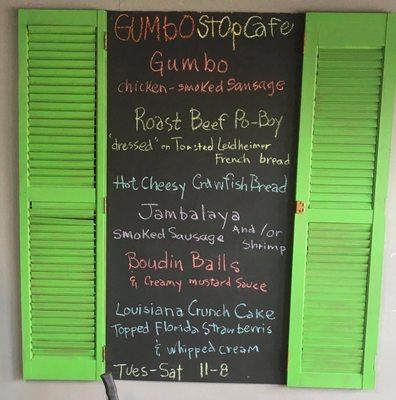 GUMBO STOP Cafe
Gumbo
chicken-smoked Sausage
Roast Beef Po-Boy
"dressed" on Toasted Leidheimer
French bread
Hot Cheesy Crawfish Bread
Jambalaya
Smoked Sausage And/or
Shrimp
Boudin Balls
& Creamy mustard Sauce
Louisiana Crunch Cake
Topped Florida Strawberris
& whipped cream
Tues-Sat 11-8